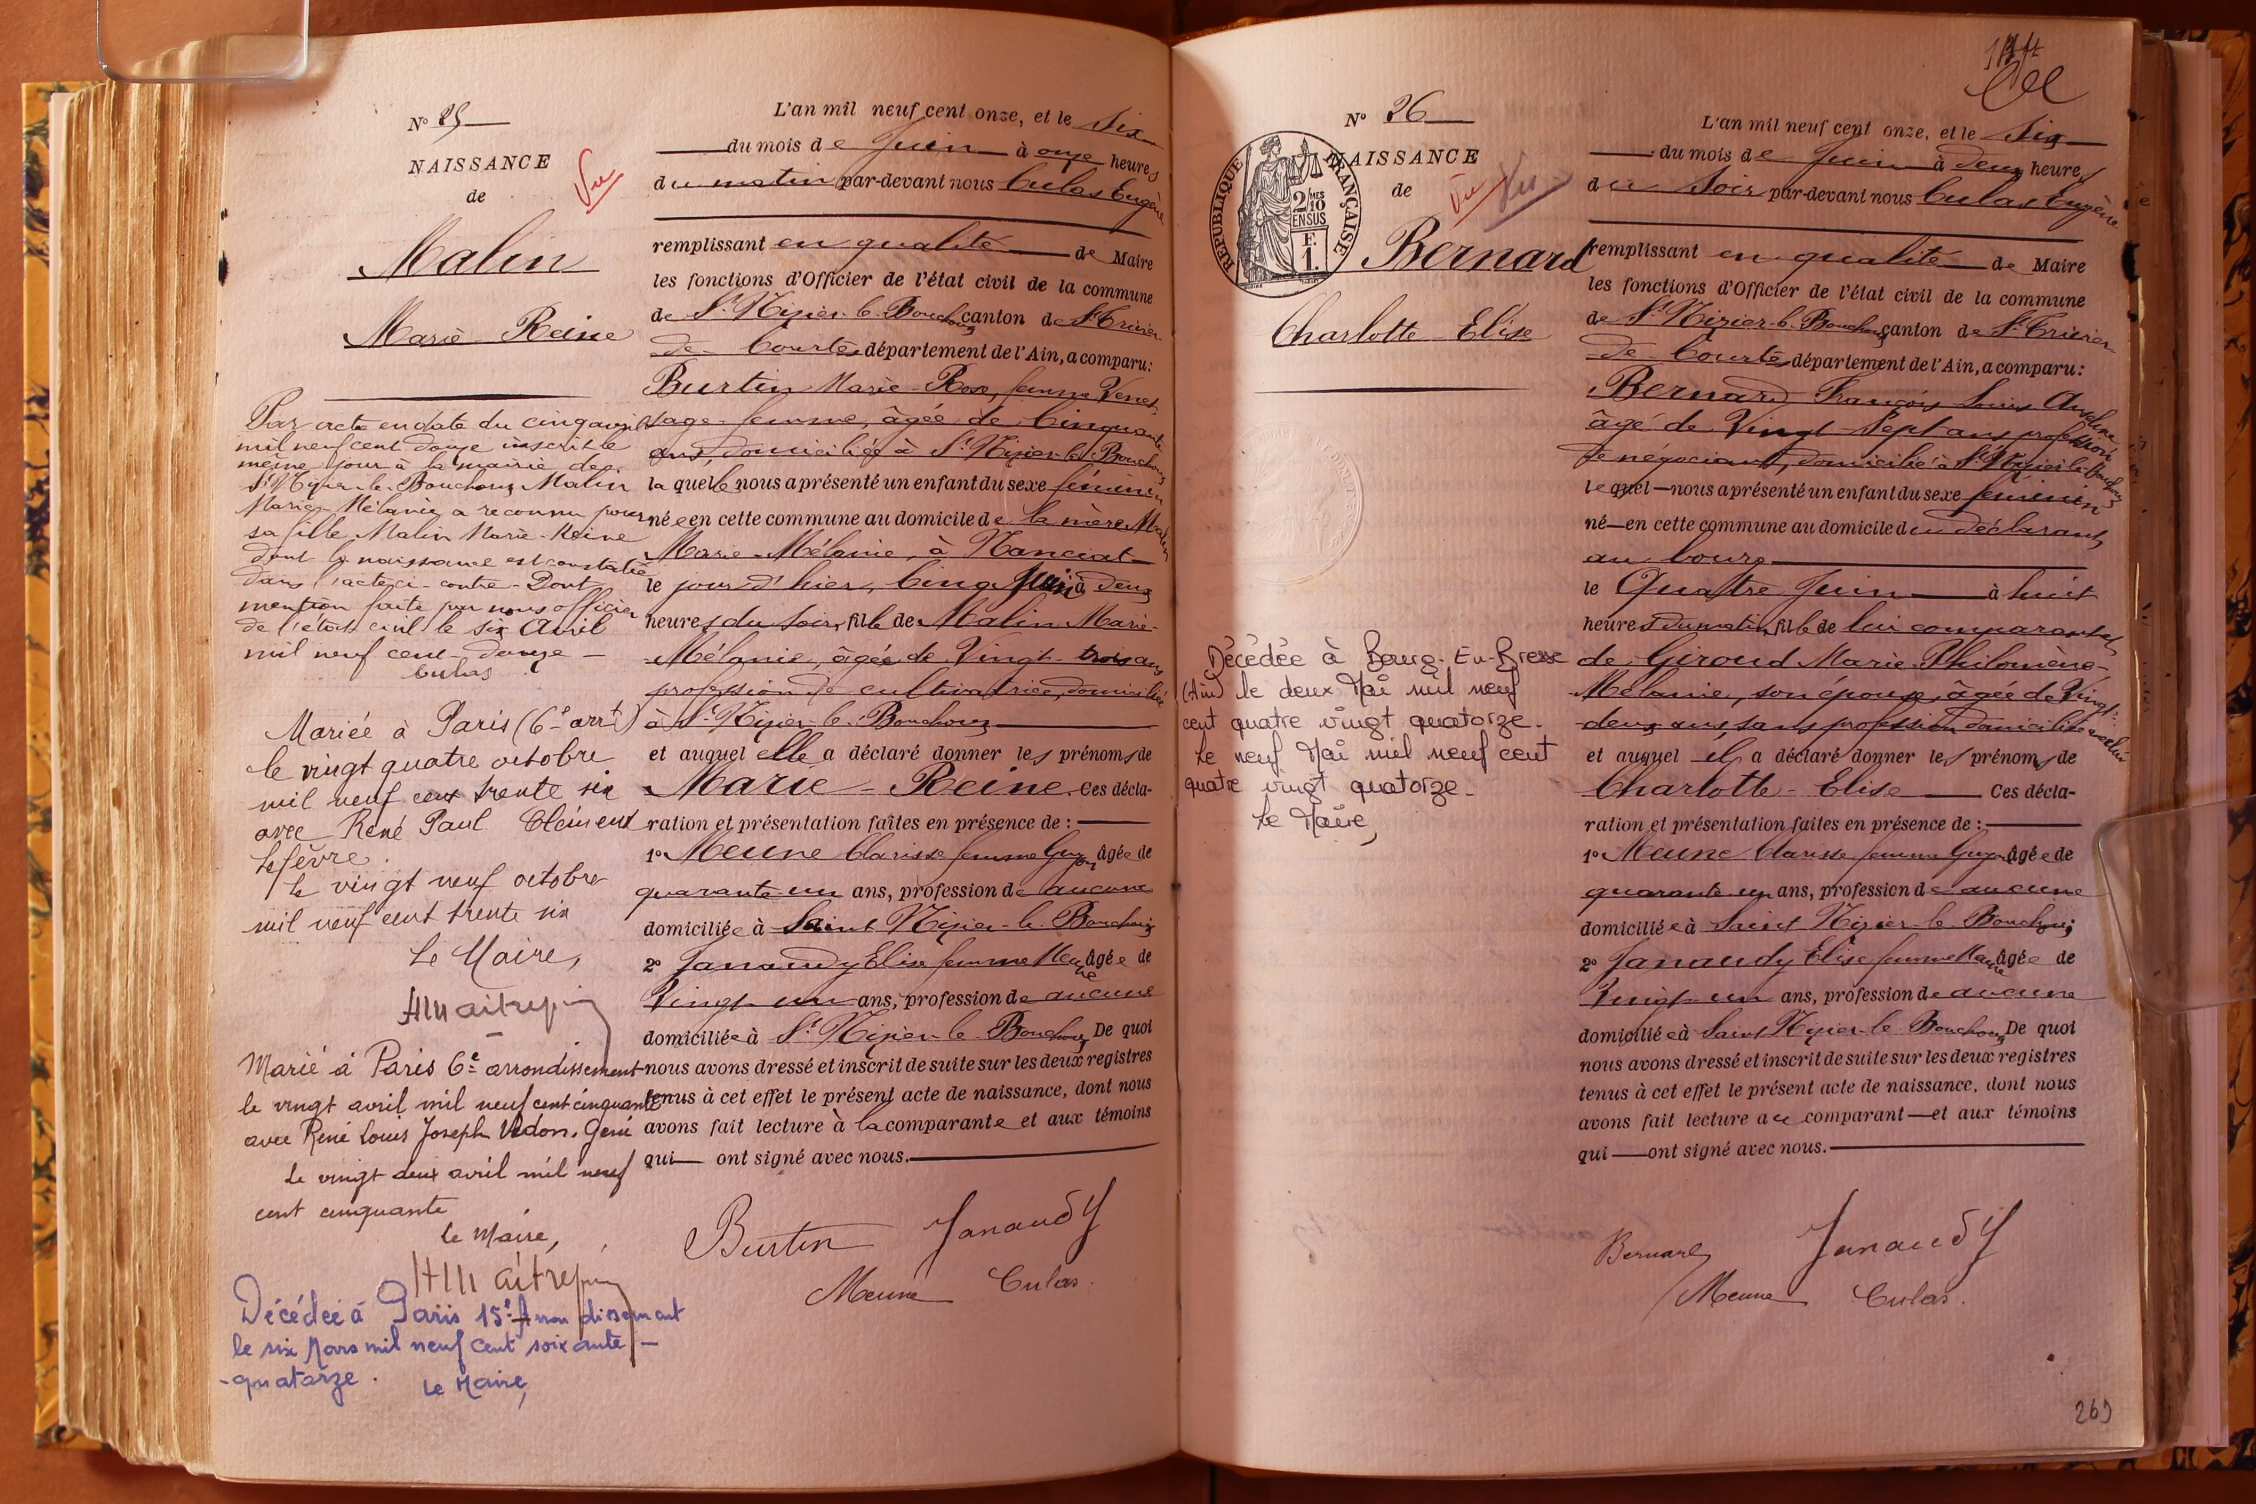 N° 25
NAISSANCE
de
Vu
Malin
Marie Reine
Par acte en date du cinq avril
mil neuf cent douze inscrit le
même jour à la mairie de
St Nizier-le-Bouchoux Malin
Marie-Mélanie a reconnu pour
sa fille Malin Marie-Reine
dont la naissance est constatée
dans l'acte ci-contre - Dont
mention faite par nous officier
de l'état civil le six Avril
mil neuf cent douze —
Culas
Mariée à Paris (6e arrt)
le vingt quatre octobre
mil neuf cent trente six
avec René Paul Clément
Lefèvre.
le vingt neuf octobre
mil neuf cent trente six
Le Maire,
Marié à Paris 6e arrondissement
le vingt avril mil neuf cent cinquante
avec René Louis Joseph
Le vingt deux avril mil neuf
cent cinquante
le Maire,
Décédée à Paris 15e Arrondissement
le six Mars mil neuf cent soixante-
-quatorze.
Le Maire,
L'an mil neuf cent onze, et le Six
du mois de Juin à onze heures
du matin par-devant nous Culas Eugène
remplissant en qualité de Maire
les fonctions d'Officier de l'état civil de la commune
de St Nizier-le-Bouchoux canton de St Trivier
de Courtes département de l'Ain, a comparu:
Burtin Marie-Rose, femme Venet
sage-femme, âgée de Cinquante
ans, domiciliée à St Nizier-le-Bouchoux
laquelle nous a présenté un enfant du sexe féminin
née en cette commune au domicile de la mère Malin
Marie-Mélanie, à Nanciat
le jour d'hier, Cinq Juin à deux
heures du soir, fille de Malin Marie-
Mélanie, âgée de Vingt-trois ans
profession de cultivatrice, domiciliée
à St Nizier-le-Bouchoux
et auquel elle a déclaré donner les prénoms de
Marie-Reine. Ces décla-
ration et présentation faites en présence de :
1° Meune Clarisse femme Guyon âgée de
quarante un ans, profession de aucune
domiciliée à Saint Nizier-le-Bouchoux
2° Janaudy Elise femme Meune âgée de
Vingt-un ans, profession de aucune
domiciliée à St Nizier-le-Bouchoux De quoi
nous avons dressé et inscrit de suite sur les deux registres
tenus à cet effet le présent acte de naissance, dont nous
avons fait lecture à la comparante et aux témoins
qui ont signé avec nous.
Burtin Janaudy
Meune Culas.
N° 26
NAISSANCE
de
Vu Vu
RÉPUBLIQUE FRANÇAISE
2/10 MES
EN SUS
F.
1.
Bernard
Charlotte-Elise
Décédée à Bourg-En-Bresse
(Ain) le deux Mai mil neuf
cent quatre vingt quatorze.
Le neuf Mai mil neuf cent
quatre vingt quatorze.
Le Maire,
L'an mil neuf cent onze, et le Six
du mois de Juin à deux heures
du Soir par-devant nous Culas Eugène
remplissant en qualité de Maire
les fonctions d'Officier de l'état civil de la commune
de St Nizier-le-Bouchoux canton de St Trivier
de Courtes département de l'Ain, a comparu:
Bernard François Louis Anselme
âgé de Vingt-Sept ans profession
de négociant, domicilié à St Nizier-le-Bouchoux
lequel nous a présenté un enfant du sexe féminin
né en cette commune au domicile du déclarant,
au bourg
le Quatre Juin à huit
heures du matin, fille de lui comparant et
de Giroud Marie-Philomène-
Mélanie, son épouse, âgée de Vingt-
deux ans, sans profession domiciliée avec lui
et auquel il a déclaré donner les prénoms de
Charlotte-Elise Ces décla-
ration et présentation faites en présence de :
1° Meune Clarisse femme Guyon âgée de
quarante un ans, profession de aucune
domiciliée à Saint Nizier-le-Bouchoux;
2° Janaudy Elise femme Meune âgée de
Vingt-un ans, profession de aucune
domiciliée à Saint Nizier-le-Bouchoux De quoi
nous avons dressé et inscrit de suite sur les deux registres
tenus à cet effet le présent acte de naissance, dont nous
avons fait lecture au comparant et aux témoins
qui ont signé avec nous.
Bernard Janaudy
Meune Culas.
269